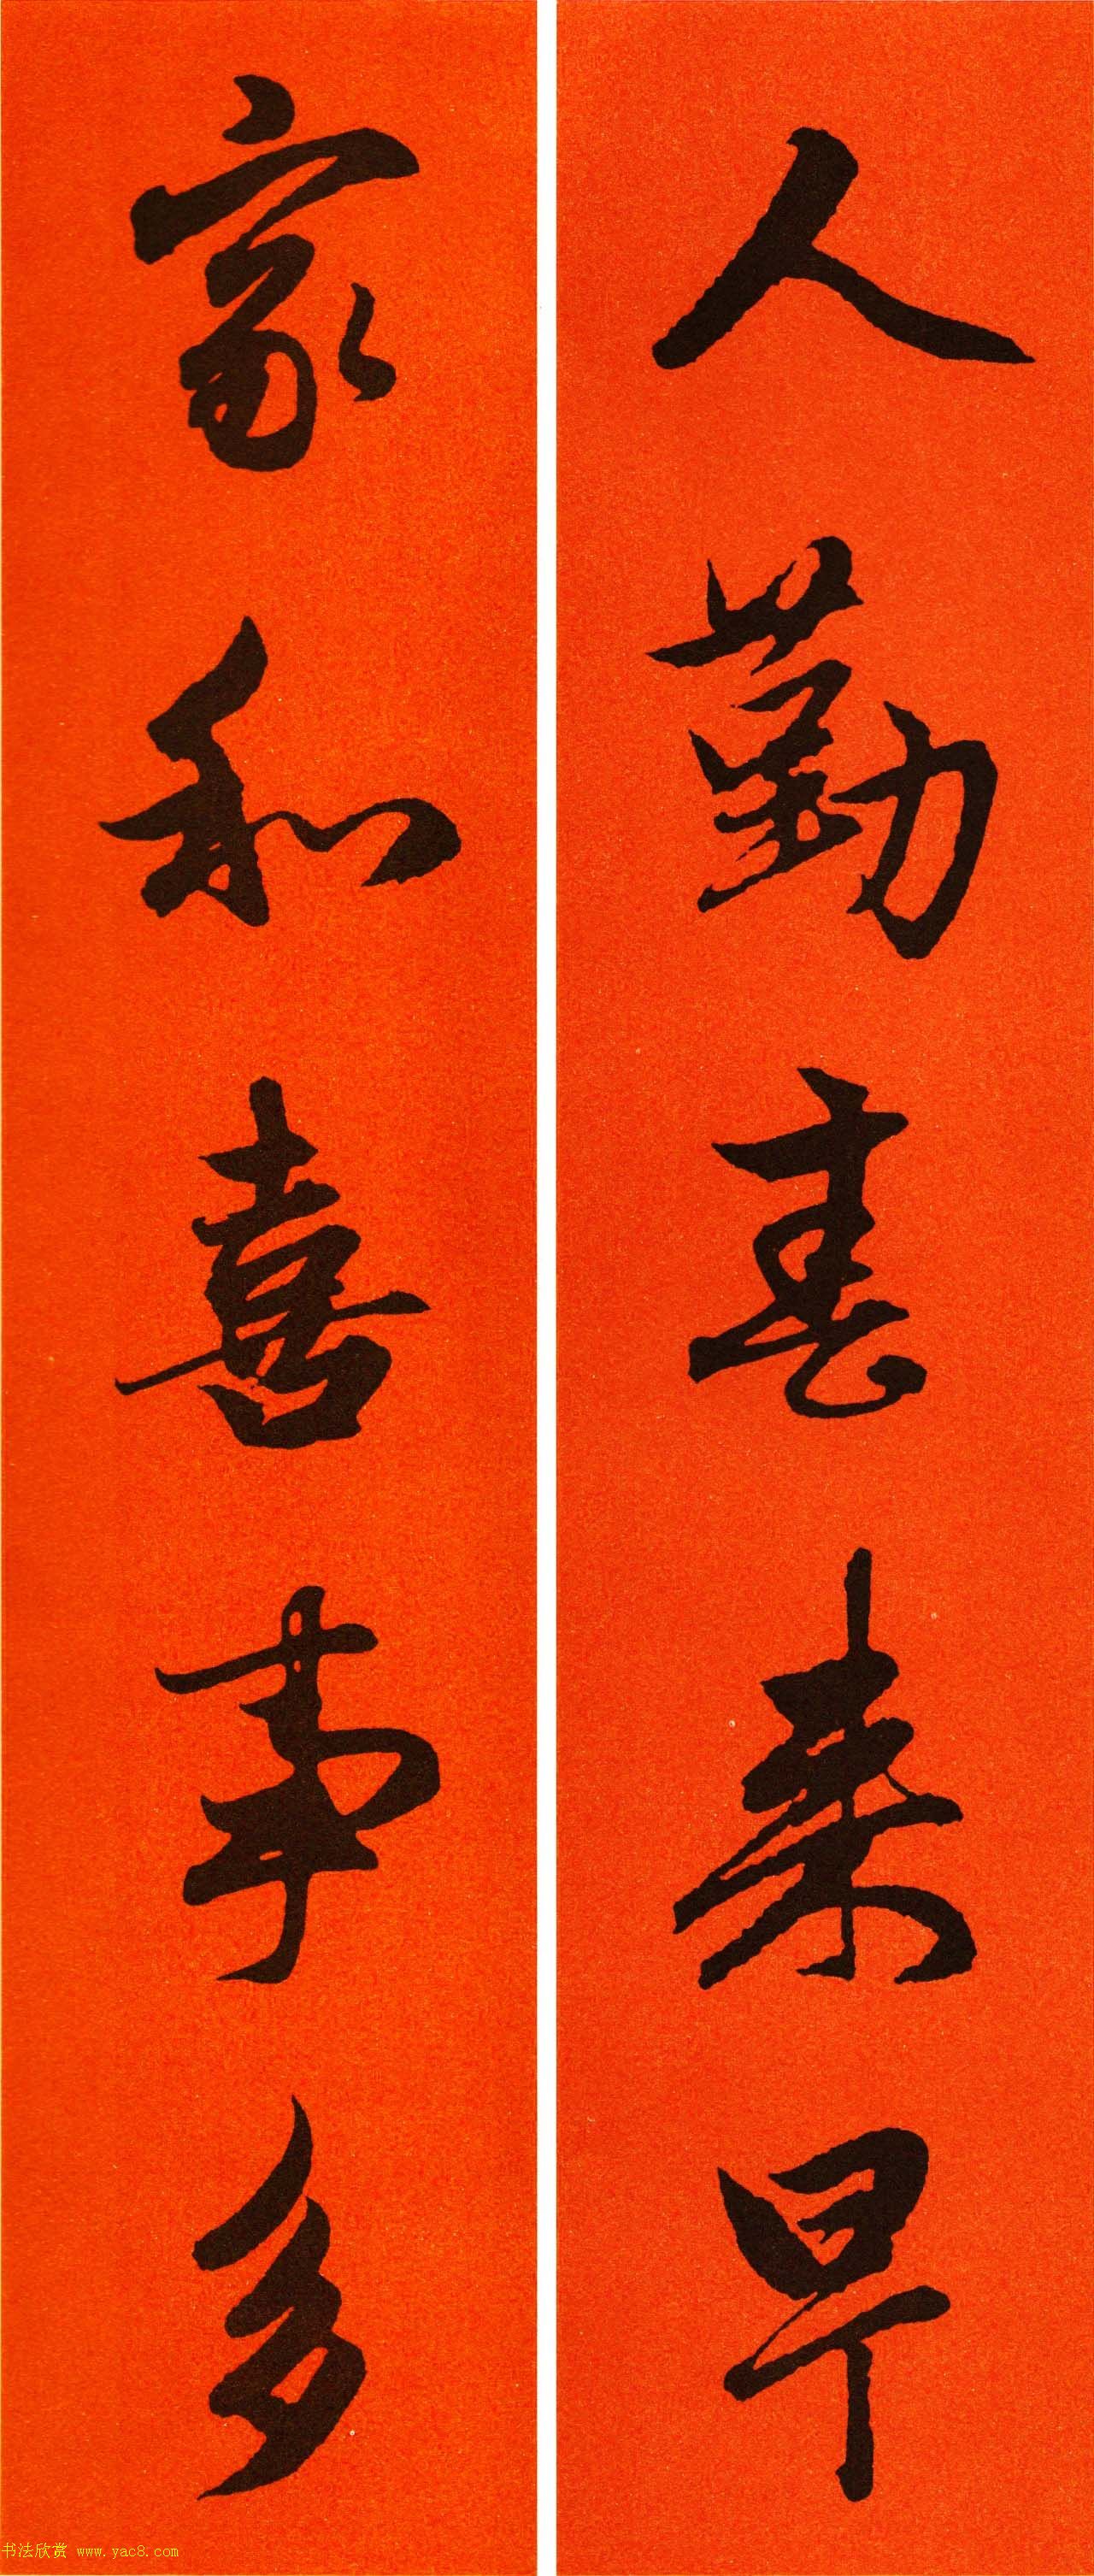 人勤春来早
家和喜事多
书法欣赏 www.yac8.com